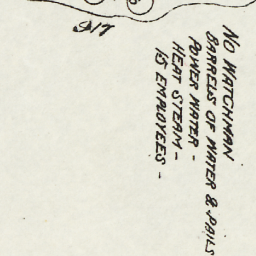 NO WATCHMAN
BARRELS OF WATER & PAILS
POWER WATER -
HEAT STEAM -
15 EMPLOYEES -